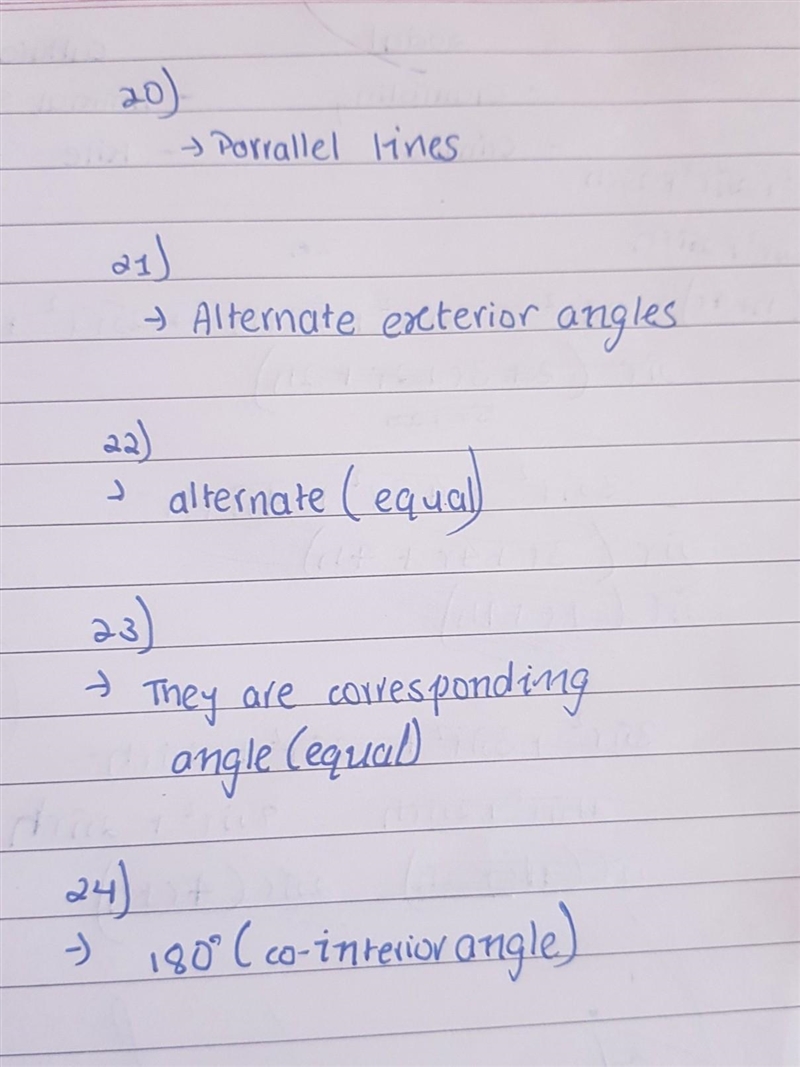 20)
→ Parrallel lines
21)
→ Alternate exterior angles
22)
→ alternate (equal)
23)
→ They are corresponding
angle (equal)
24)
→ 180° (co-interior angle)